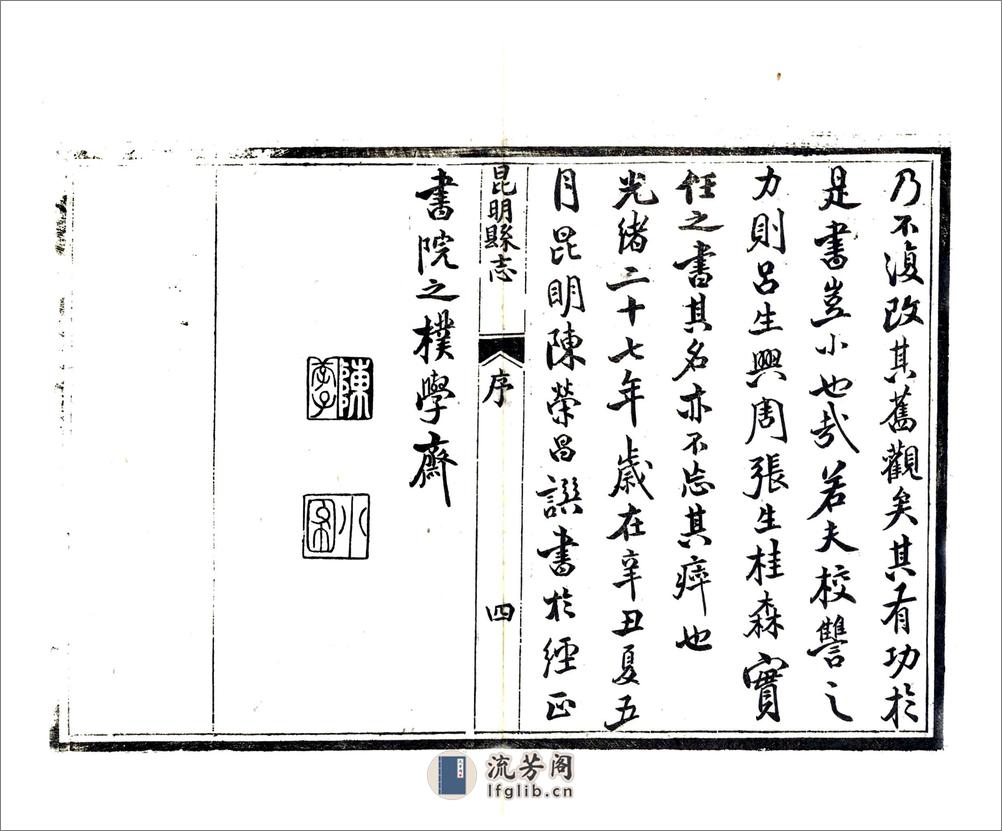 乃不復改其舊觀矣其有功於
是書豈小也哉若夫校讐之
力則呂生興周張生桂森實
任之書其名亦不忘其瘁也
光緒二十七年歲在辛丑夏五
月昆明陳榮昌譔書於經正
昆明縣志
序
四
書院之樸學齋
陳
小
流芳阁
lfglib.cn